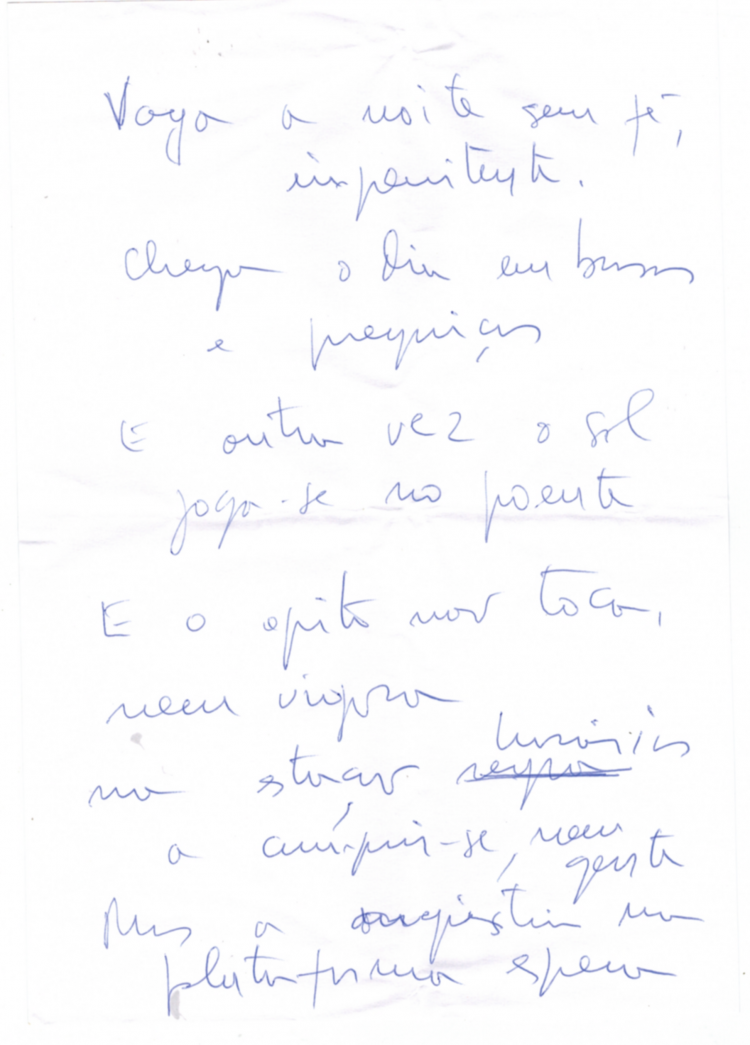 Vaga a noite sem fé,
impenitente.
Chega o dia em brumas
e preguiças
E outra vez o sol
joga-se no poente
E o apito não toca,
nem vigora
na estação horários
a cumprir-se, nem
gente
Mas a angústia na
plataforma espera